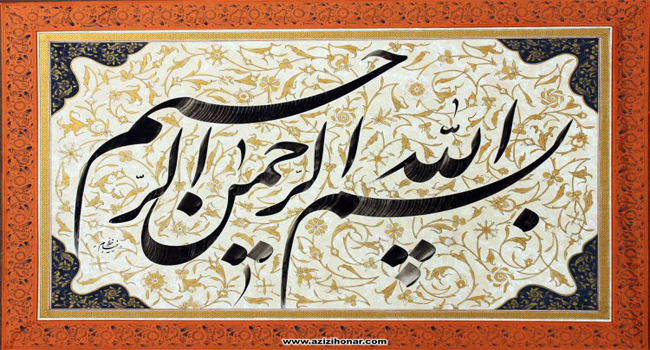 بسم الله الرحمن الرحیم
www.azizihonar.com